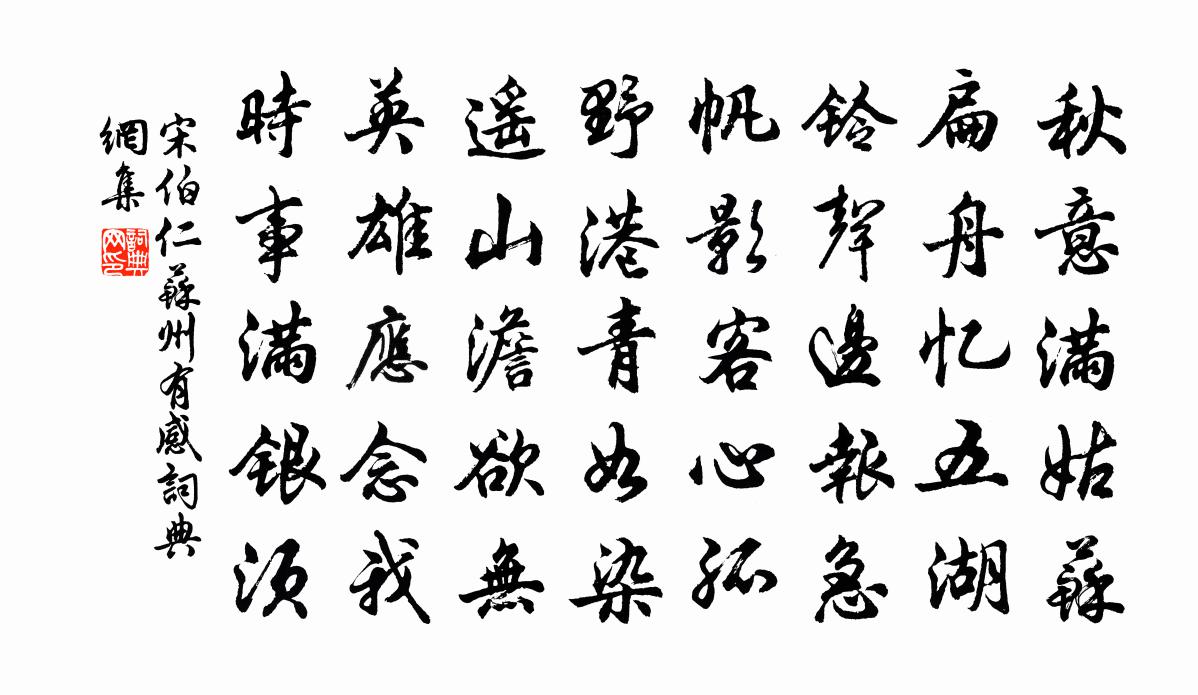 秋意满姑蘇
扁舟忆五湖
鈴聲邊報急
帆影客心孤
野港青如染
遥山澹欲無
英雄應念我
時事满銀须
宋伯仁蘇州有感詞典
網集
詞典網印